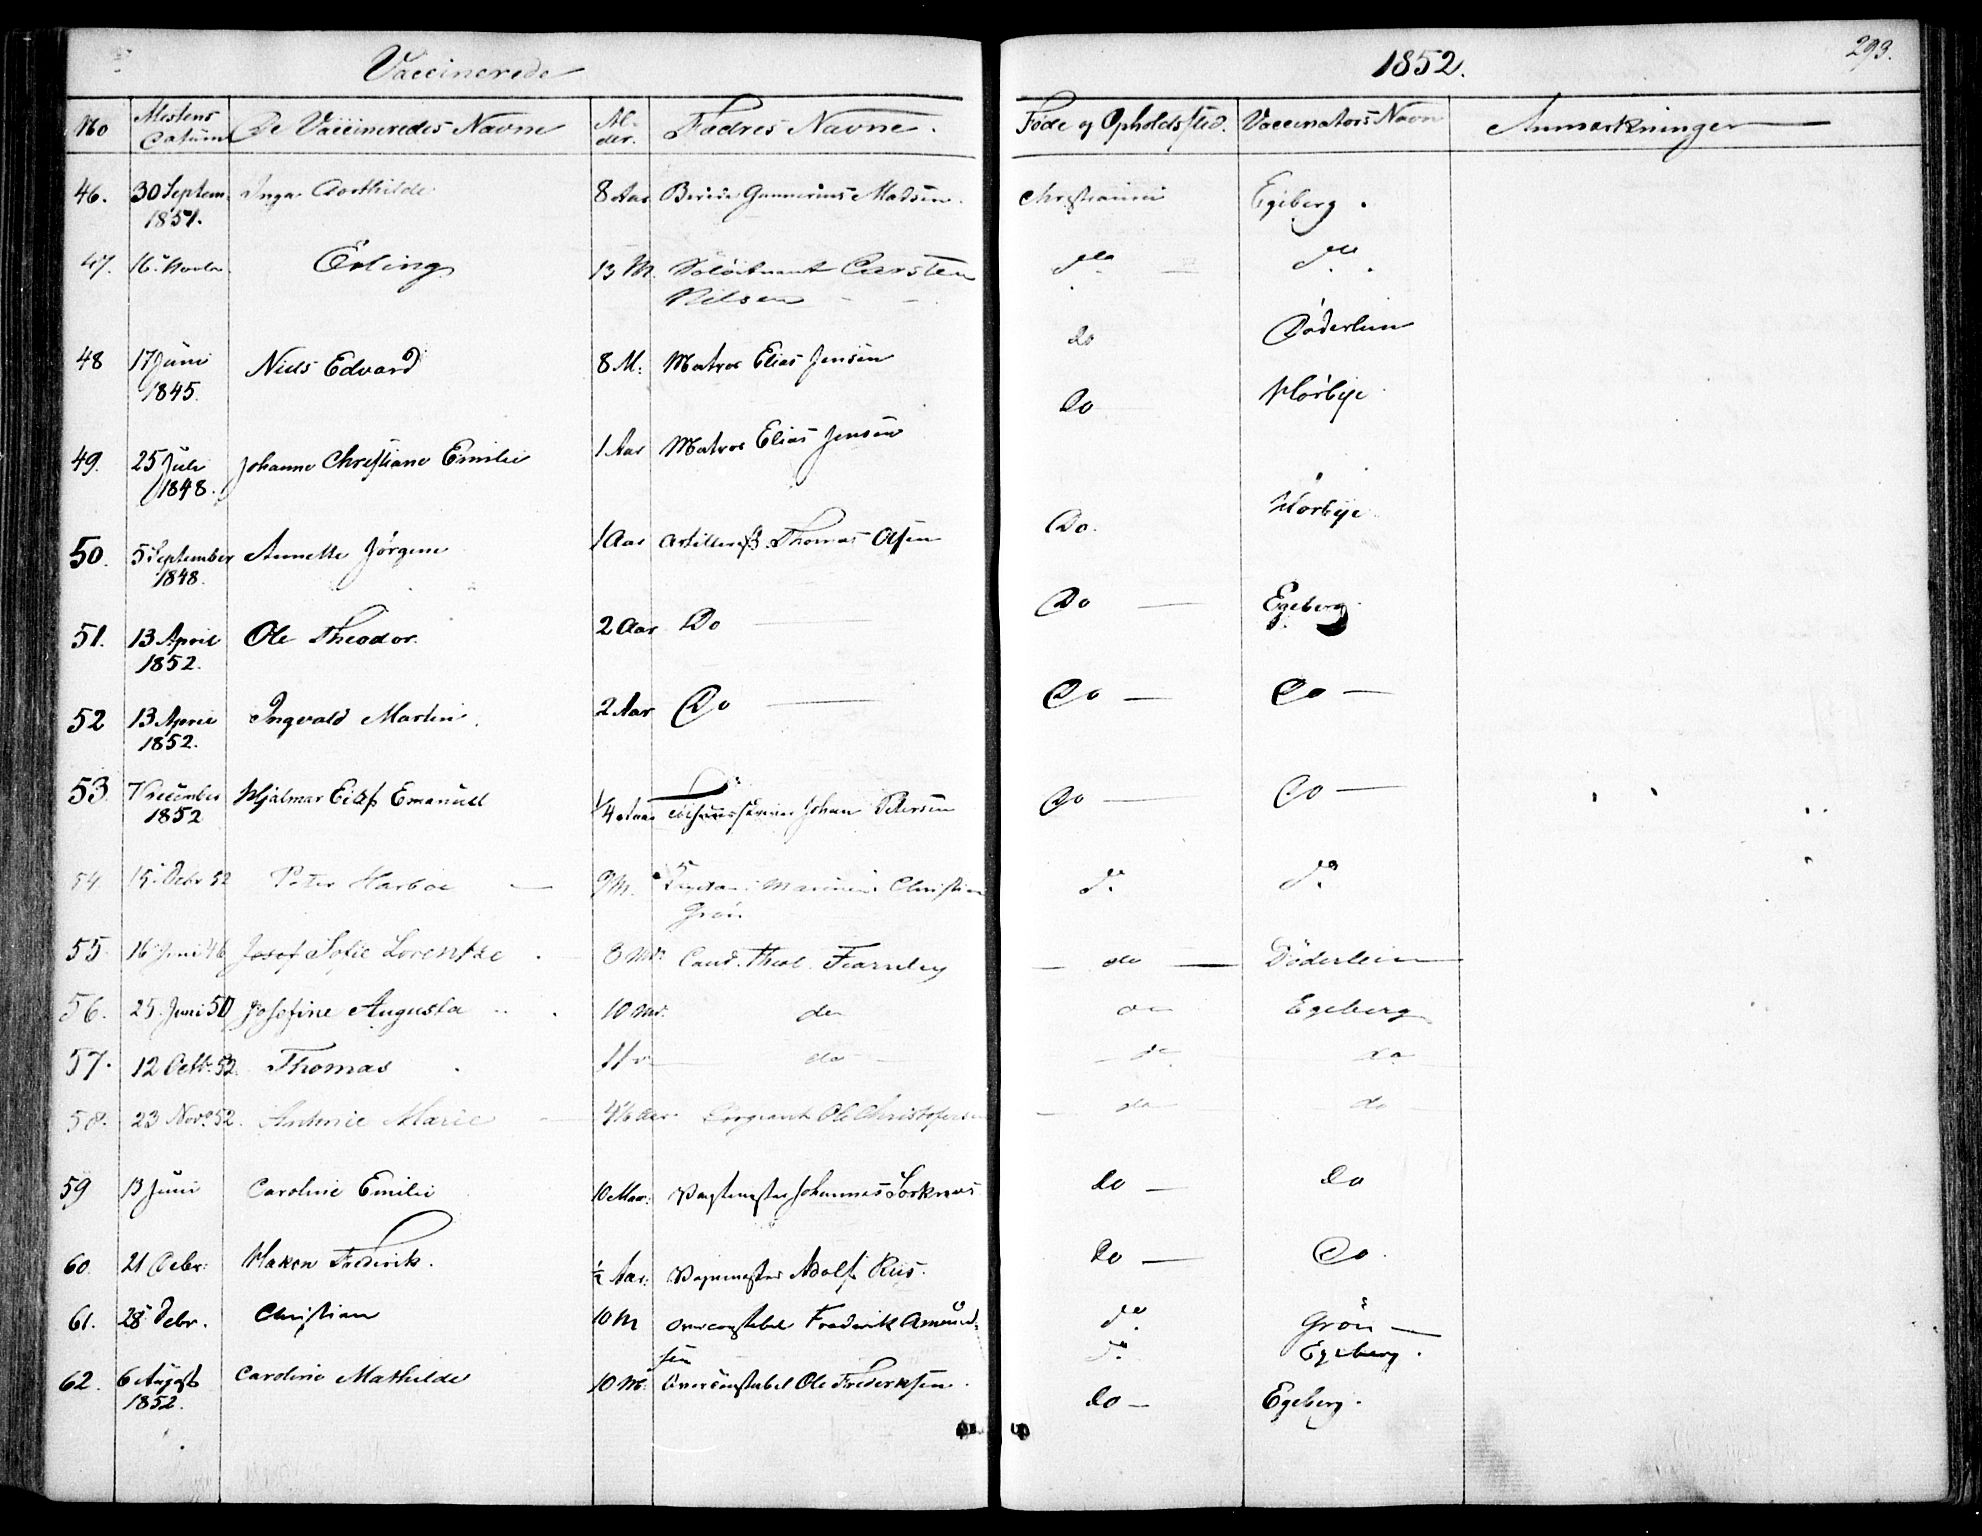 Vaccinerede
1852.
293.
No Attestens Datum De Vaccineredes Navne Al- der. Fædres Navne. Føde og Opholdssted. Vaccinators Navn Anmærkninger
46. 30 Septem. 1851. Inga Aasthilde 8 Aar Gunnerius Madsen. Christiania Egeberg.
47. 16 Novbr. Erling 13 M. Carsten Nilsen do do
48 17 Juni 1845. Niels Edvard 8 M: Matros Elias Jensen do Döderlein
49. 25 Juli 1848. Johanne Christiane Emilie 1 Aar Matros Elias Jensen Do Hørbye
50. 5 September 1848. Annette Jørgine 1 Aar Artillerist Thomas Olsen Do. Hørbye
51. 13 April 1852. Ole Theodor. 2 Aar Do Do Egeberg.
52 13 April 1852. Ingvald Martin. 2 Aar Do Do Do
53 7 December 1852 Hjalmar Eilif Emanuel 1/4 Aar Johan Petersen Do Do
54. 15 Debr 52 Peter Harboe 9 M. Christian Grøn do do
55. 16 Juni 46 Josef Sofie Lorentze 8 Md: Cand. Theol. Fearnley do Döderlein
56. 25. Juni 50 Josefine Augusta 10 Md. do do Egeberg
57. 12 Octb. 52. Thomas do do do
58. 23 Novr 52. Antonie Marie Sergeant Ole Christofersen do do
59 13 Juni Caroline Emilie 10 Maan: Vagtmester Johannes Sorknæs do do
60. 21 Debr: Haken Frederik. ½ Aar: Vagtmester Adolf Riis. do Do
61. 28 Debr. Christian 10 M Overconstabel Frederik Amund- sen do Grøn
do Egeberg.
62. 6 August 1852. Caroline Mathilde 10 M: Overconstabel Ole Fredriksen. do Egeberg.